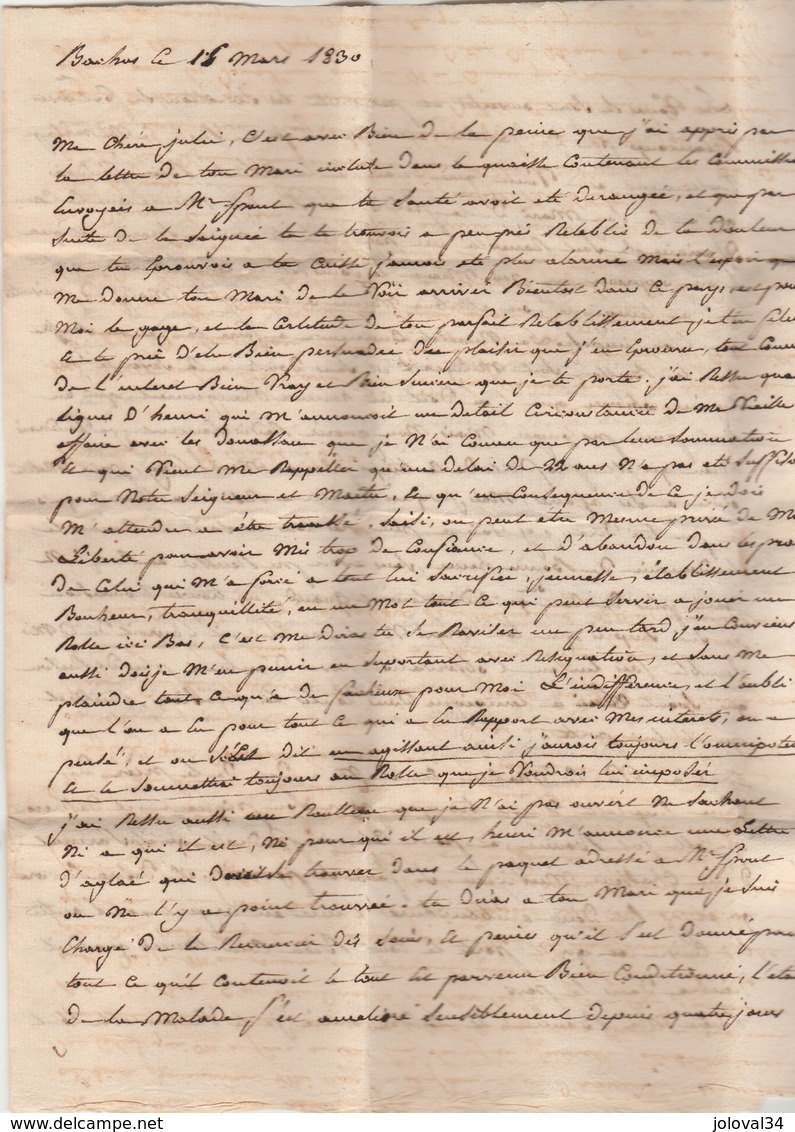 Bachos le 16 Mars 1830
Ma Chére julie, C'est avec Bien de la peine que j'ai appris par
la lettre de ton Mari incluse dans la quaisse Contenant les Commissi
Envoyés a Mr Spont que ta Santé avoit été derangée, et que par
Suite de la Saignée tu te trouvois a peu prés Retablie de la douleur
que tu Eprouvois a ta Cuisse j'aurois eté plus alarmé Mais l'espoir que
Me donne ton Mari de te Voir arriver Bientot dans Ce pays, est pour
Moi le gage, et la Certitude de ton parfait Retablissement, je t'en
Et te prie D'etre Bien persuadée du plaisir que j'en Eprouve, tout Comme
De l'interet Bien Vray et Bien Sincere que je te porte. j'ai Ressu que
lignes D'henri qui M'annoncoit un detail Circonstancié de Ma Vieille
affaire avec les que je N'ai Connu que par leur Sommation
Et qui Vient Me Rappeller qu'un delai de 22 ans N'a pas eté Suffisa
pour Notre Seigneur et Maitre, Et qu'en Consequence de Ce je dois
M'attendre a étre troublé. Saisi, ou peut etre Mesme privé de Ma
Liberté pour avoir Mis trop de Confiance, et D'abandon dans les pro
de Celui qui M'a forcé a tout lui Sacrifier, jeunesse, établissement
Bonheur, tranquillité, en un Mot tout Ce qui peut Servir a jouer un
Rolle ici Bas, C'est Me diras tu Se Raviser un peu tard, j'en Conviens
aussi dois je M'en punir en Suportant avec Resignation, et Sans Me
plaindre tout Ce qu'a de facheux pour Moi L'indifference, et l'oubli
que l'on a Eu pour tout Ce qui a Eu Rapport avec Mes interets, on a
pensé, et on s'est dit en agissant ainsi j'aurois toujours l'omnipote
Et le Soumettrai toujours au Rolle que je Voudrois lui imposer
j'ai Ressu aussi un Roulleau que je N'ai pas ouvert Ne Sachant
Ni a qui il est, Ni pour qui il est, henri M'annonce une Lettre
D'aglaé qui Doit se trouver dans le paquet adressé a Mr Spont
on Ne l'y a point trouvée. tu diras a ton Mari que je Suis
Chargé De le Remercier des Soins, Et peines qu'il S'est Donné pour
tout Ce qu'il Contenoit le tout Est parvenu Bien Conditionné, l'eta
De la Malade S'est amelioré Sensiblement depuis quatre jours
joloval34